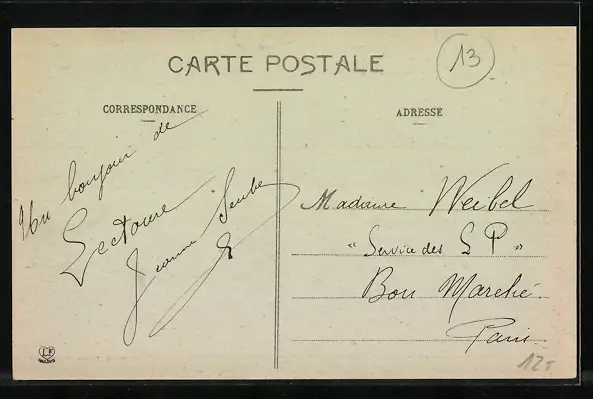 CARTE POSTALE
13
CORRESPONDANCE
ADRESSE
Un bonjour de
Lectoure
Jeanne
Madame Weibel
" Service des S P "
Bon Marché
Paris
LF